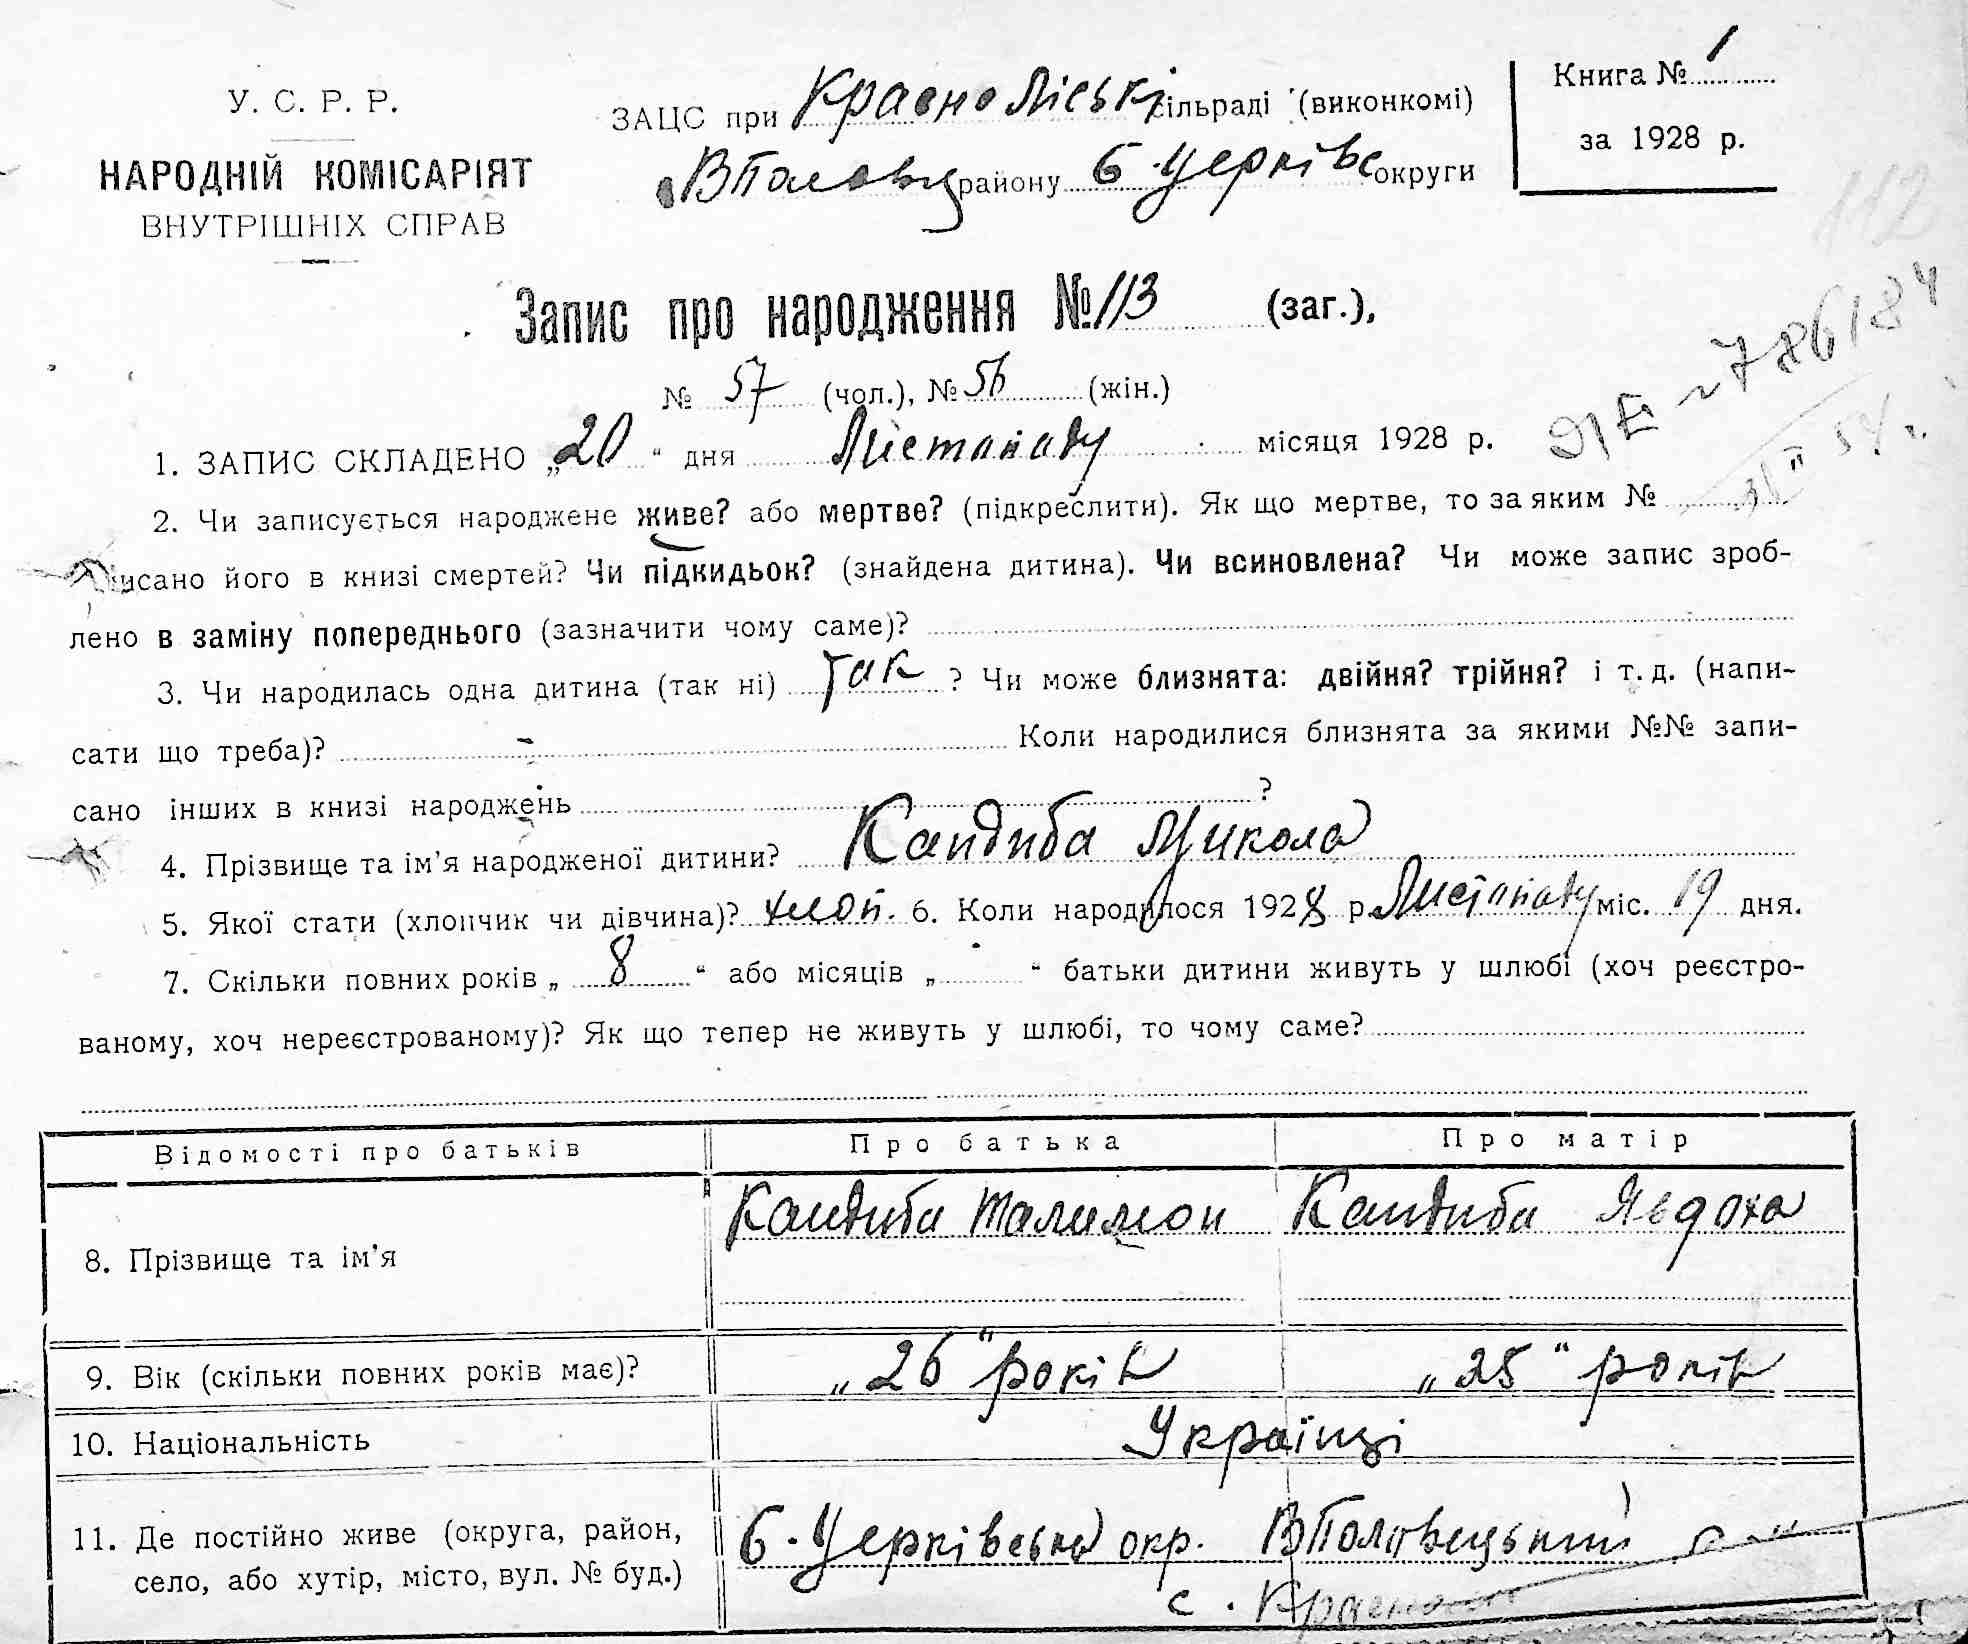 У. С. Р. Р.
НАРОДНІЙ КОМІСАРІЯТ
ВНУТРІШНІХ СПРАВ
ЗАЦС при КрасноЛіські сільраді (виконкомі)
ВПоловц району Б-Церківс округи
Книга № 1
за 1928 р.
112
Запис про народження № 113 (заг.),
№ 57 (чол.), № 56 (жін.)
ЯЕ № 786184
1. ЗАПИС СКЛАДЕНО „20“ дня Листопаду місяця 1928 р.
2. Чи записується народжене живе? або мертве? (підкреслити). Як що мертве, то за яким №
писано його в книзі смертей? Чи підкидьок? (знайдена дитина). Чи всиновлена? Чи може запис зроб-
лено в заміну попереднього (зазначити чому саме)?
3. Чи народилась одна дитина (так ні) так ? Чи може близнята: двійня? трійня? і т. д. (напи-
сати що треба)? - Коли народилися близнята за якими №№ запи-
сано інших в книзі народжень ?
4. Прізвище та ім'я народженої дитини? Кандиба Микола
5. Якої стати (хлопчик чи дівчина)? хлоп. 6. Коли народилося 1928 р. Листопаду міс. 19 дня.
7. Скільки повних років „ 8 “ або місяців „ “ батьки дитини живуть у шлюбі (хоч реєстро-
ваному, хоч нереєстрованому)? Як що тепер не живуть у шлюбі, то чому саме?
Відомості про батьків Про батька Про матір
8. Прізвище та ім'я Кандиба Талимон Кандиба Явдоха
9. Вік (скільки повних років має)? „26“ років „25“ років
10. Національність Українці
11. Де постійно живе (округа, район, село, або хутір, місто, вул. № буд.) Б-Церківська окр. ВПоловецький р-н
с.